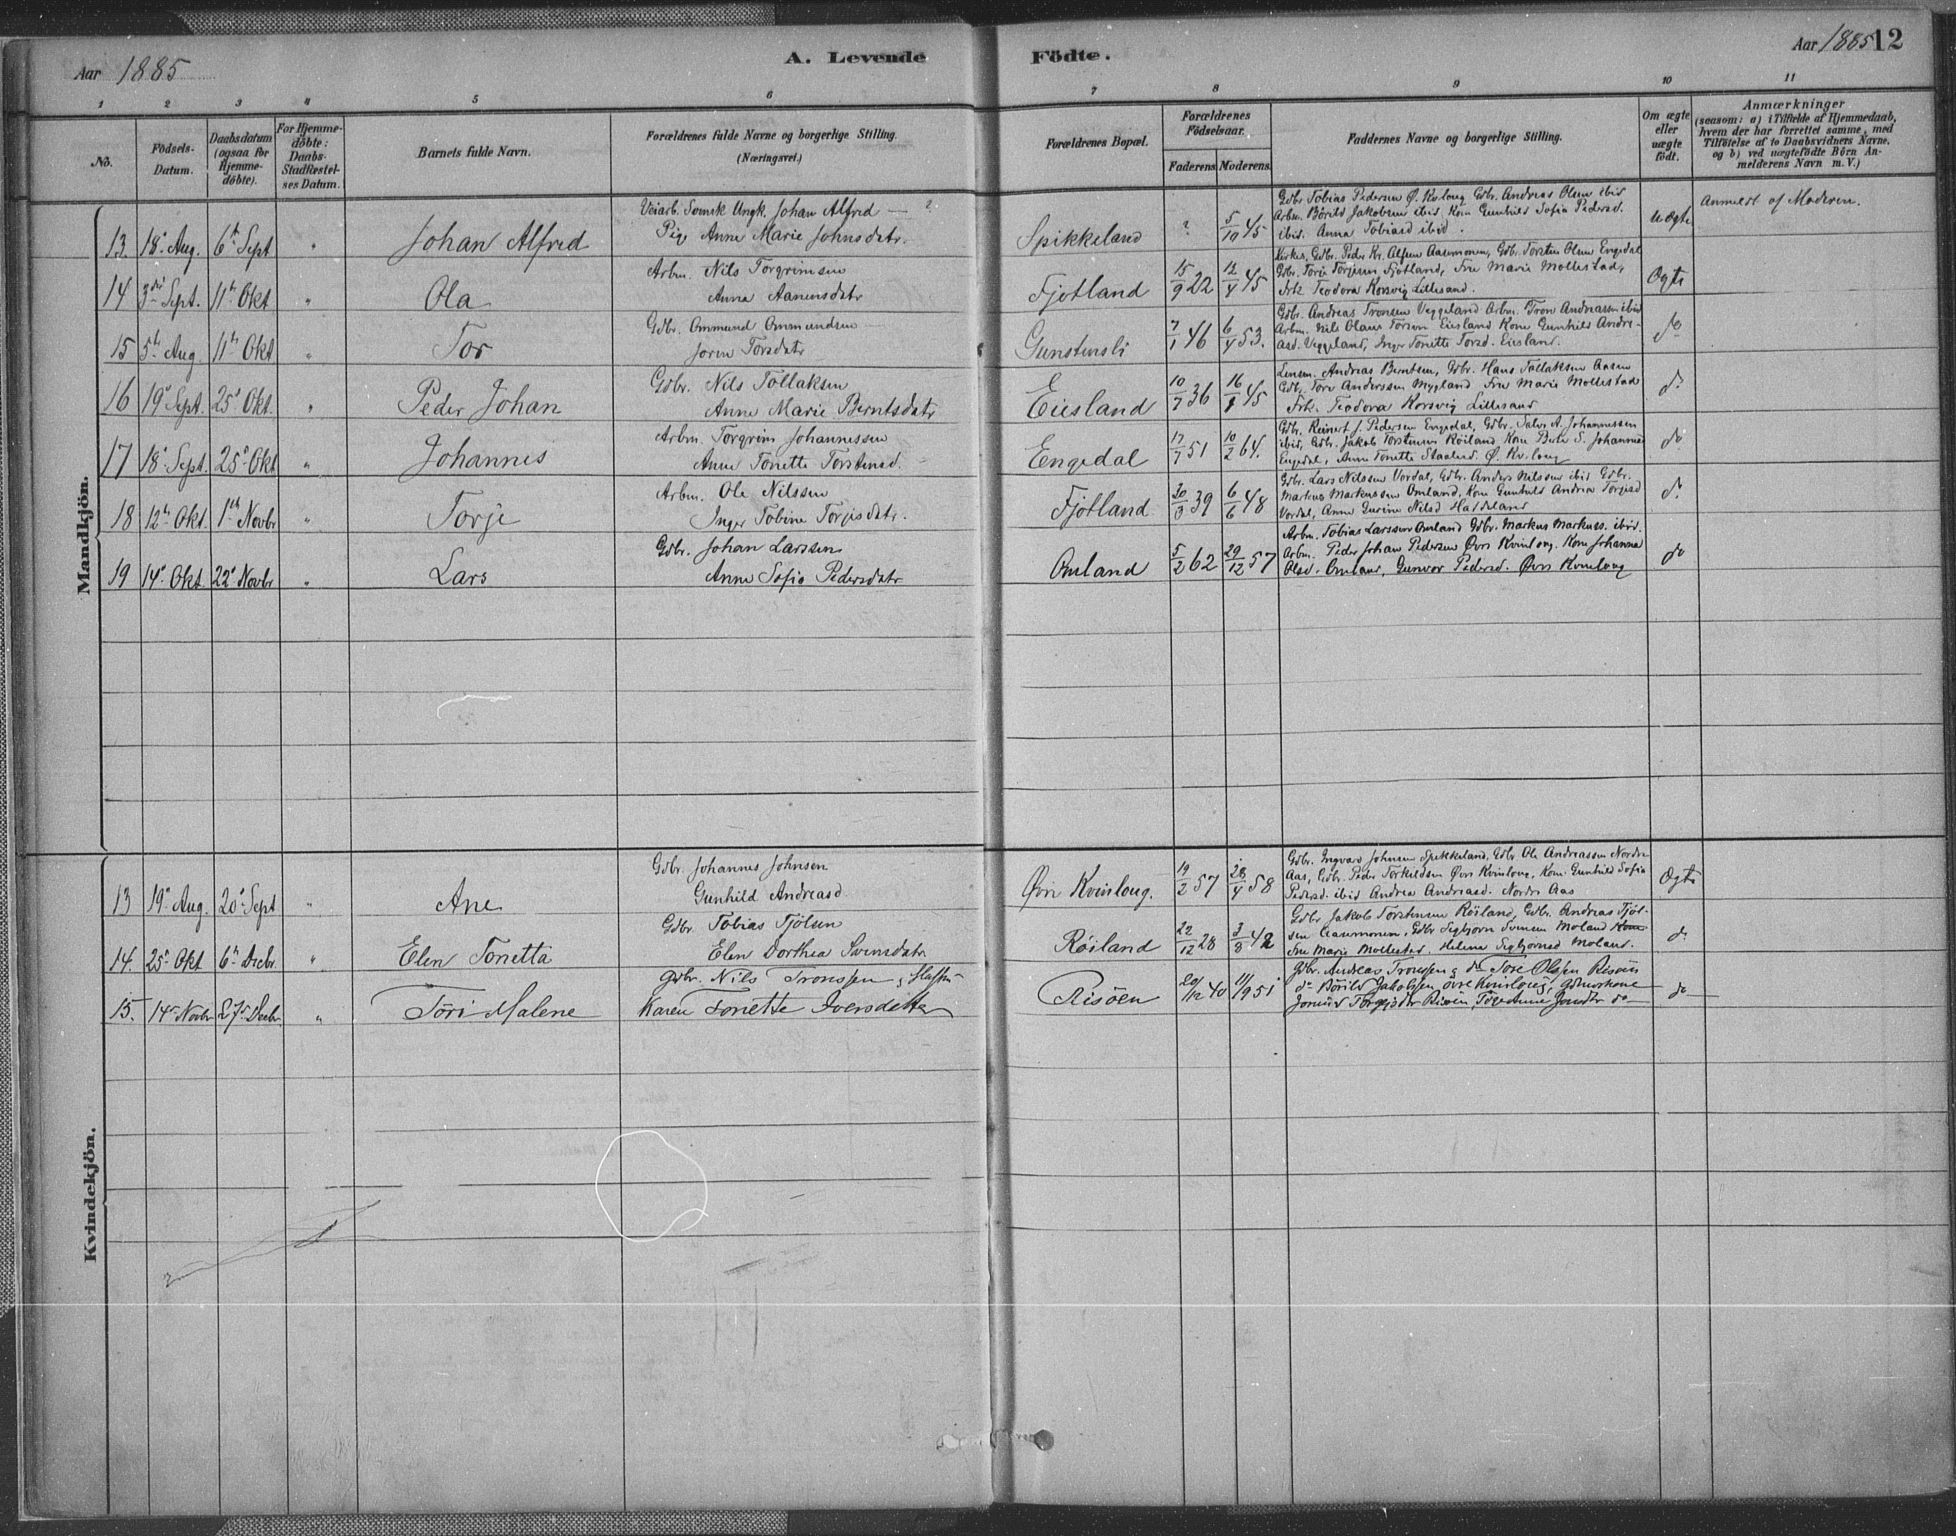 Aar 1885
A. Levende
Födte.
Aar 1885 12
1 2 3 4 5 6 7 8 9 10 11
No.
Födsels-Datum.
Daabsdatum (ogsaa for Hjemme-döbte).
For Hjemme-döbte: Daabs-Stadfæstel-ses Datum.
Barnets fulde Navn.
Forældrenes fulde Navne og borgerlige Stilling.
(Næringsvei.)
Forældrenes Bopæl.
Forældrenes Födselsaar.
Faderens Moderens.
Faddernes Navne og borgerlige Stilling.
Om ægte eller uægte födt.
Anmærkninger
(saasom: a) i Tilfælde af Hjemmedaab, hvem der har forrettet samme, med Tilföielse af to Daabsvidners Navne, og b) ved uægtefödte Börn An-melderens Navn m. V.)
Mandkjön.
13. 18 Aug. 6te Sept " Johan Alfred
Veiarb. Svensk Ungk. Johan Alfred — ?
Pige Anne Marie Johnsdatr.
Spikkeland ? 5/10 45
Gdbr Tobias Pedersen Ø. Kvlong Gdbr. Andreas Olsen ibid
Arbm. Börild Jakobsen ibid. Kone Gunhild Sofia Pedersd.
ibid. Anna Tobiasd ibid.
Uægte
Anmeldt af Moderen.
14 3die Sept. 11te Okt " Ola
Arbm. Nils Torgrimsen
Anna Aanensdatr
Fjotland 15/9 22 12/4 45
Kirkes. Gdbr. Peder Kr. Alfsen Aasemonen, Gdbr. Torsten Olsen Engedal
Gdbr. Torje Torjesen Fjotland, Frue Marie Mollestad,
Frk Teodora Korsvig Lillesand.
Ægte
15 5te Aug. 11te Okt " Tor
Gdbr. Ommund Ommundsen
Joren Torsdatr
Gunstensli 7/1 46 6/4 53.
Gdbr. Andreas Tronsen Veggeland Arbm. Tron Andreassen ibid
Arbm. Nils Olaus Torsen Eiesland Kone Gunhild Andre-
asd. Veggeland, Inger Tonette Torsd. Eiesland.
do
16 19 Sept. 25 Okt. " Peder Johan
Gdbr. Nils Tollaksen
Anne Marie Berntsdatr
Eiesland 10/7 36 16/1 45
Lensm. Andreas Berntsen, Gdbr. Hans Tollaksen Aasen
Gdbr. Tore Anderssen Mygland Frue Marie Mollestad
Frk. Teodora Korsvig Lillesand
do
17 18 Sept. 25 Okt " Johannes
Arbm. Torgrim Johannessen
Anne Tonette Torstensd.
Engedal 17/7 51 10/2 64.
Gdbr. Reinert J. Pedersen Engedal, Gdbr. Salve A. Johannessen
ibid, Gdbr. Jakob Torstensen Röiland Kone Berte S. Johannes
Engedal, Anne Tonette Staalesd. Ø. Kv.long
do
18 12te Okt. 1te Novbr " Torje
Arbm. Ole Nilssen
Inger Tobine Torjesdatr.
Fjotland 30/3 39 6/6 48
Gdbr. Lars Nilssen Vordal, Gdbr. Anders Nilssen ibid Gdbr.
Markus Markussen Omland, Kone Gunhild Andrea Torjesd
Vordal, Anne Gurine Nilsd Haddeland
do
19 14 Okt. 22 Novbr " Lars
Gdbr. Johan Larssen
Anne Sofie Pedersdatr
Omland 5/2 62 29/12 57
Arbm. Tobias Larssen Omland Gdbr. Markus Markuss. ibid.
Arbm. Peder Johan Pedersen Øvre Kvinlong. Kone Johanna
Olsd. Omland, Gunvor Pedersd. Øvre Kvinlong
do
Kvindekjön.
13 19 Aug. 20 Sept " Ane
Gdbr. Johannes Johnsen
Gunhild Andreasd
Øvre Kvinlong. 19/2 57 28/4 58
Gdbr. Ingvard Johnsen Spikkeland, Gdbr Ole Andreassen Nordre
Aas, Gdbr. Peder Torkildsen Øvre Kvinlong, Kone Gunhild Sofia
Pedersd. ibid Andrea Andreasd. Nordre Aas
Ægte
14. 25 Okt 6te Decbr. " Elen Tonetta
Gdbr. Tobias Tjölsen
Elen Dorthea Svensdatr
Röiland 22/12 28 3/8 42
Gdbr Jakob Torstensen Röiland, Gdbr. Andreas Tjöl-
sen Aasemonen, Gdbr Sigbjorn Svensen Moland
Frue Marie Mollestad, Helene Sigbjornsd Moland.
do
15. 14 Novbr 27 Decbr. " Tori Malene
Gdbr. Nils Tronssen,
Karen Tonette Iversdatter
Risöen 20/12 40 11/9 51
Gdbr. Andreas Tronssen, do Tore Olssen Risöen
do Börild Jakobssen övre Kvinlong, Gdmdskone
Jorund Torgesdtr Risöen, Pige Anne do
do